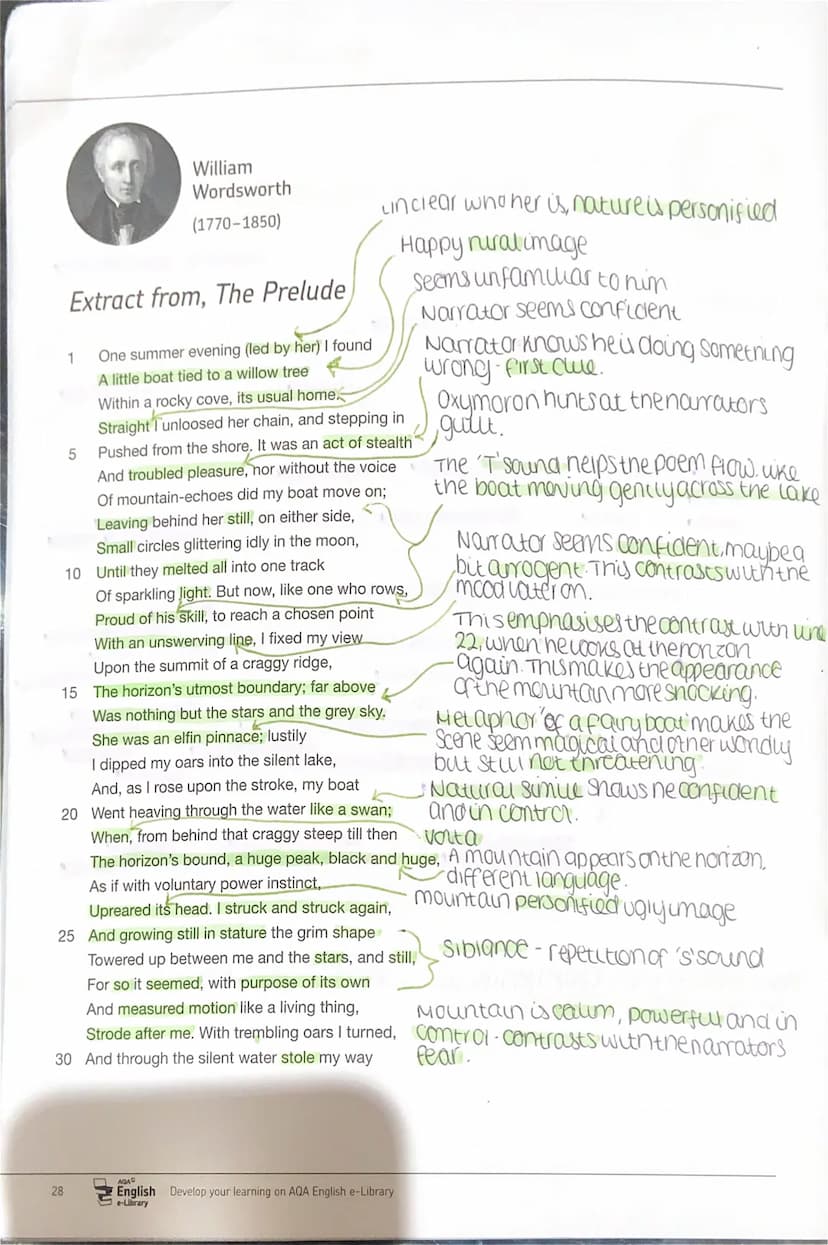 William
Wordsworth
(1770–1850)
unclear who her is, nature is personified
Happy rural image
seems unfamiliar to him
Narrator seems confident
Narrator knows he is doing something
wrong - first clue.
Oxymoron hints at the narrators
guilt.
The 'T' sound helps the poem flow. like
the boat moving gently across the lake
Narrator seems confident, maybe a
bit arrogent. This contrasts with the
mood later on.
This emphasises the contrast with line
22, when he looks at the horizon
again. This makes the appearance
of the mountain more shocking.
Metaphor 'of a fairy boat' makes the
scene seem magical and other worldly
but still not threatening.
Natural simile shows he confident
and in control.
volta
A mountain appears on the horizon,
different language.
mountain personified ugly image
Siblance - repetition of 's' sound
Mountain is calum, powerful and in
control - contrasts with the narrators
fear.
Extract from, The Prelude
1 One summer evening (led by her) I found
A little boat tied to a willow tree
Within a rocky cove, its usual home.
Straight I unloosed her chain, and stepping in
5 Pushed from the shore. It was an act of stealth
And troubled pleasure, nor without the voice
Of mountain-echoes did my boat move on;
Leaving behind her still, on either side,
Small circles glittering idly in the moon,
10 Until they melted all into one track
Of sparkling light. But now, like one who rows,
Proud of his skill, to reach a chosen point
With an unswerving line, I fixed my view
Upon the summit of a craggy ridge,
15 The horizon's utmost boundary; far above
Was nothing but the stars and the grey sky.
She was an elfin pinnace; lustily
I dipped my oars into the silent lake,
And, as I rose upon the stroke, my boat
20 Went heaving through the water like a swan;
When, from behind that craggy steep till then
The horizon's bound, a huge peak, black and huge,
As if with voluntary power instinct,
Upreared its head. I struck and struck again,
25 And growing still in stature the grim shape
Towered up between me and the stars, and still,
For so it seemed, with purpose of its own
And measured motion like a living thing,
Strode after me. With trembling oars I turned,
30 And through the silent water stole my way
28
AQA
English
e-Library
Develop your learning on AQA English e-Library